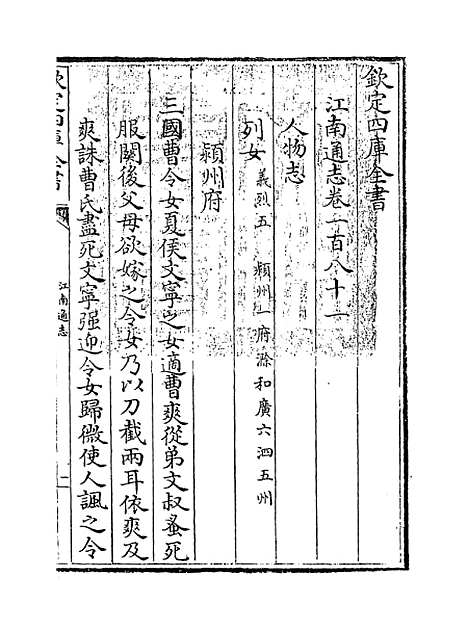 欽定四庫全書
江南通志卷一百八十一
人物志
列女 義烈五 潁州一府滁和廣六泗五州
潁州府
三國曹令女夏侯文寧之女適曹爽從弟文叔蚤死
服闋後父母欲嫁之令女乃以刀截兩耳依爽及
爽誅曹氏盡死文寧强迎令女歸微使人諷之令
欽定四庫全書
江南通志
一